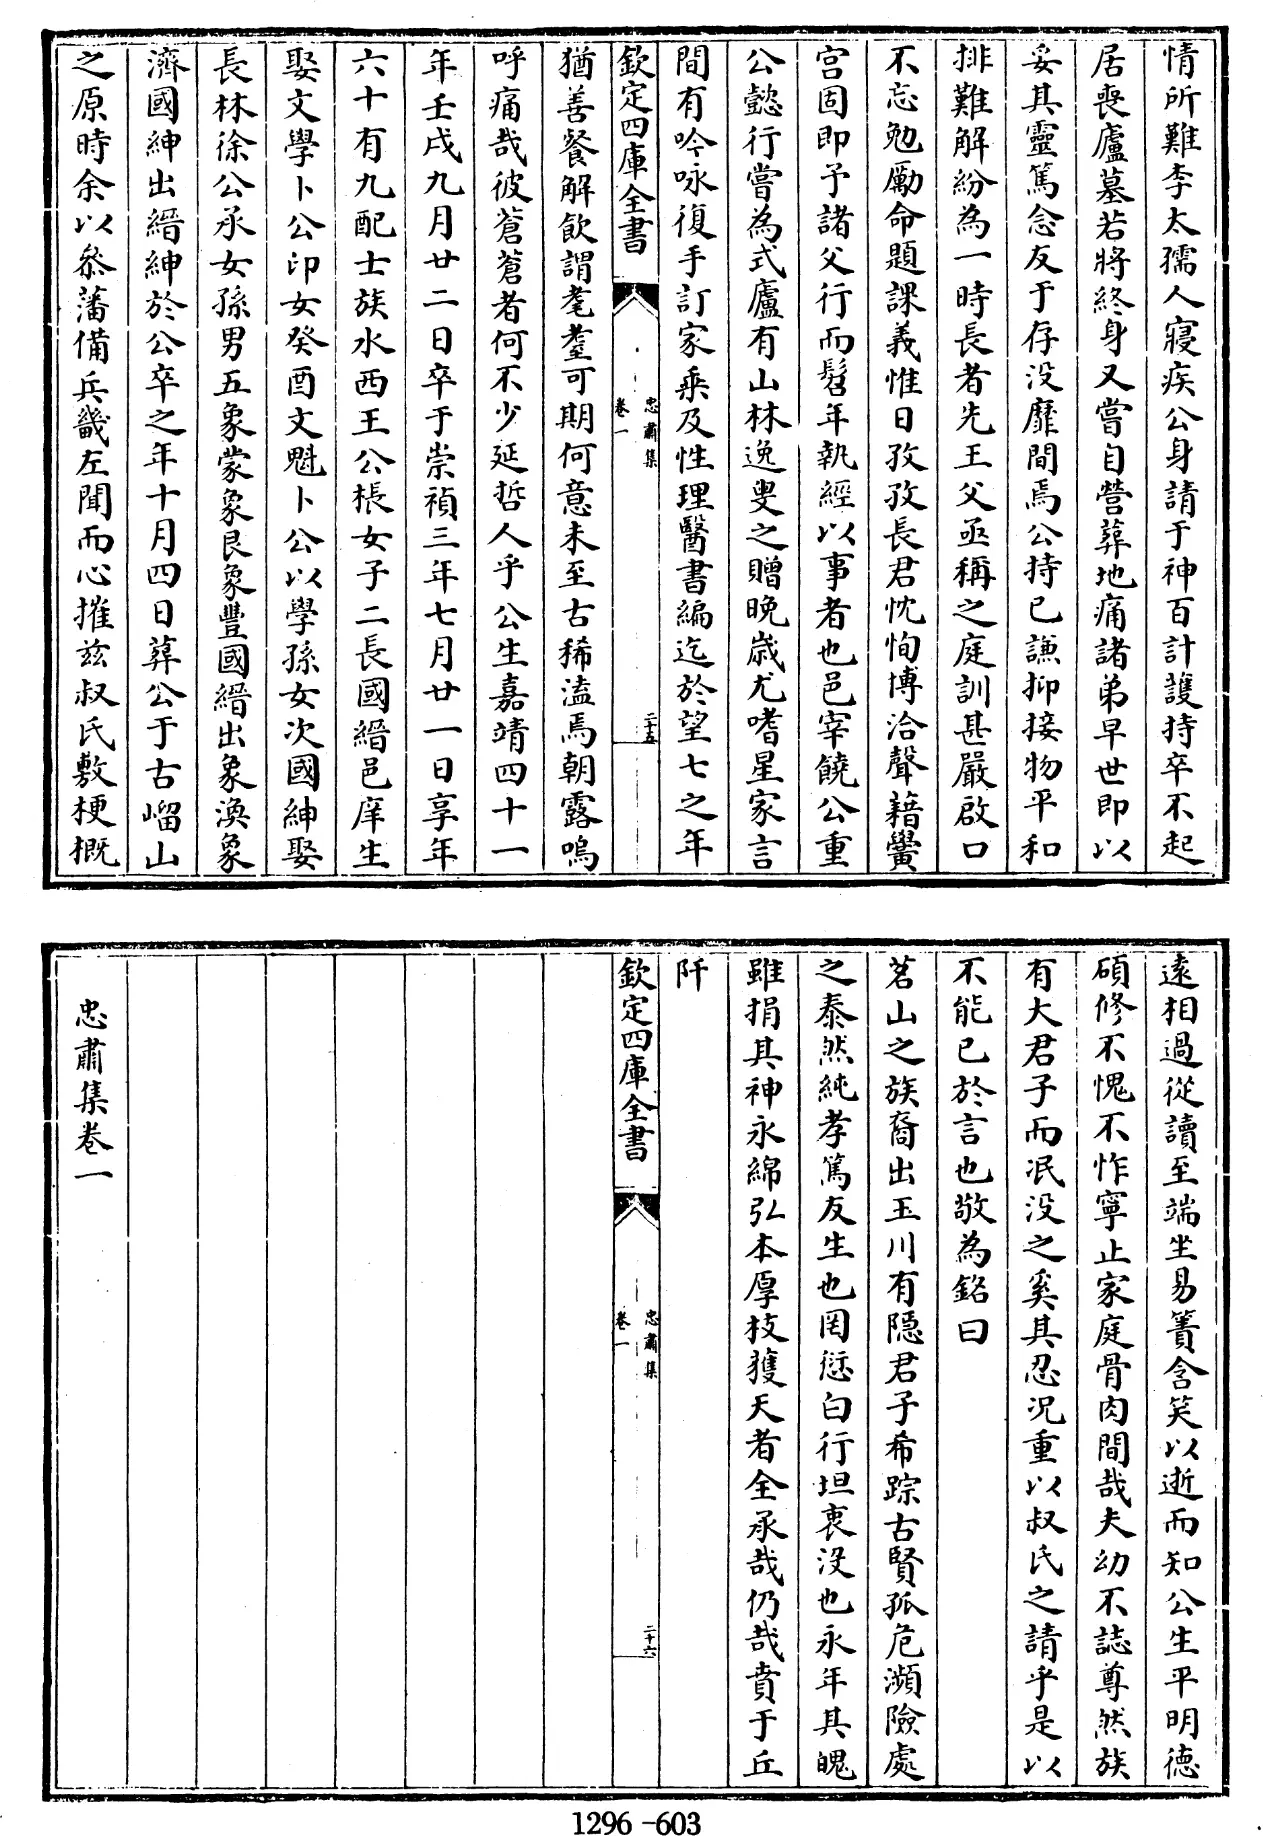 情所難李太孺人寢疾公身請于神百計護持卒不起
居喪廬墓若將終身又嘗自營葬地痛諸弟早世即以
妥其靈篤念友于存没靡間焉公持已謙抑接物平和
排難解紛為一時長者先王父亟稱之庭訓甚嚴啟口
不忘勉勵命題課義惟日孜孜長君忱恂博洽聲藉黌
宫固即予諸父行而髫年執經以事者也邑宰饒公重
公懿行嘗為式廬有山林逸叟之贈晚嵗尤嗜星家言
間有吟咏復手訂家乘及性理醫書編迄於望七之年
欽定四庫全書
忠肅集
卷一
二十五
猶善餐解飲謂耄耋可期何意未至古稀溘焉朝露嗚
呼痛哉彼蒼蒼者何不少延哲人乎公生嘉靖四十一
年壬戌九月廿二日卒于崇禎三年七月廿一日享年
六十有九配士族水西王公棖女子二長國縉邑庠生
娶文學卜公印女癸酉文魁卜公以學孫女次國紳娶
長林徐公承女孫男五象蒙象艮象豐國縉出象渙象
濟國紳出縉紳於公卒之年十月四日葬公于古㟅山
之原時余以叅藩備兵畿左聞而心摧兹叔氏敷梗概
遠相過從讀至端坐易簀含笑以逝而知公生平明德
碩修不愧不怍寧止家庭骨肉間哉夫幼不誌尊然族
有大君子而泯没之奚其忍况重以叔氏之請乎是以
不能已於言也敬為銘曰
茗山之族裔出玉川有隠君子希踪古賢孤危瀕險處
之泰然純孝篤友生也罔愆白行坦衷沒也永年其魄
雖捐其神永綿弘本厚枝獲天者全承哉仍哉賁于丘
阡
欽定四庫全書
忠肅集
卷一
二十六
忠肅集卷一
1296-603